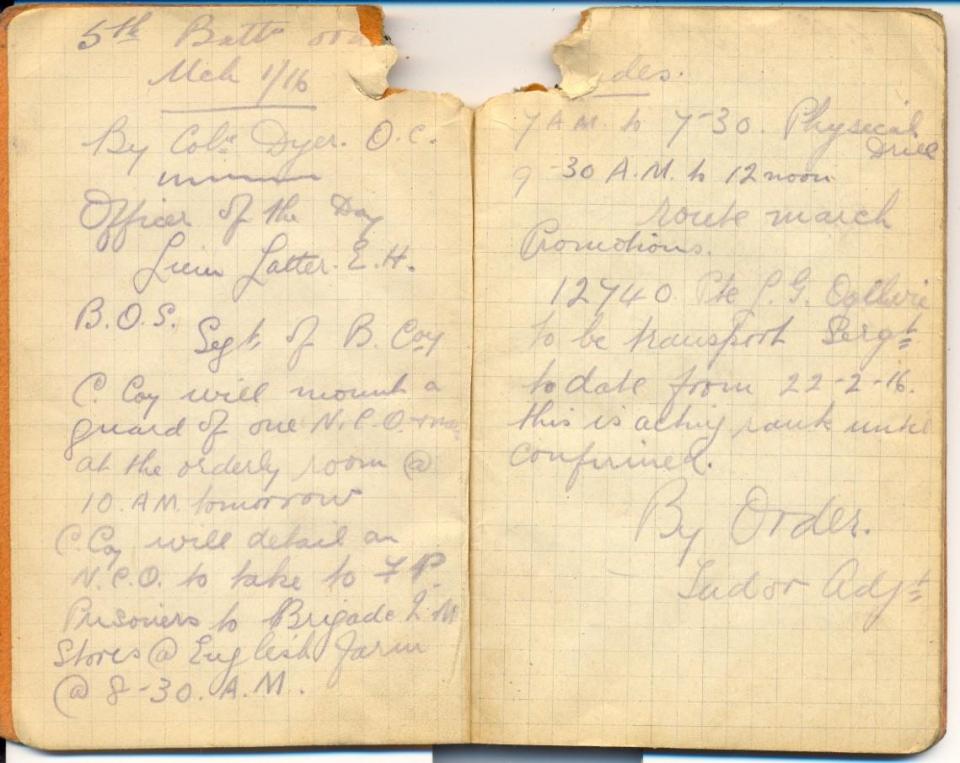 5th Battn
Mch 1/16
By Col: Dyer. O.C.
Officer of the Day
Lieu Latter. E.H.
B.O.S.
Segt. of B. Coy
C. Coy will mount a
guard of one N.C.O. +
at the orderly room @
10. A.M. tomorrow
C. Coy will detail an
N.C.O. to take to F.P.
Prisoners to Brigade Q.M
Stores @ English Farm
@ 8-30. A.M.
7 A.M. to 7-30. Physical
Drill
9-30 A.M. to 12 noon
route march
Promotions.
12740 Pte G. Ogilvie
to be transport Sergt
to date from 22-2-16.
this is acting rank until
confirmed.
By Order.
Tudor Adjt